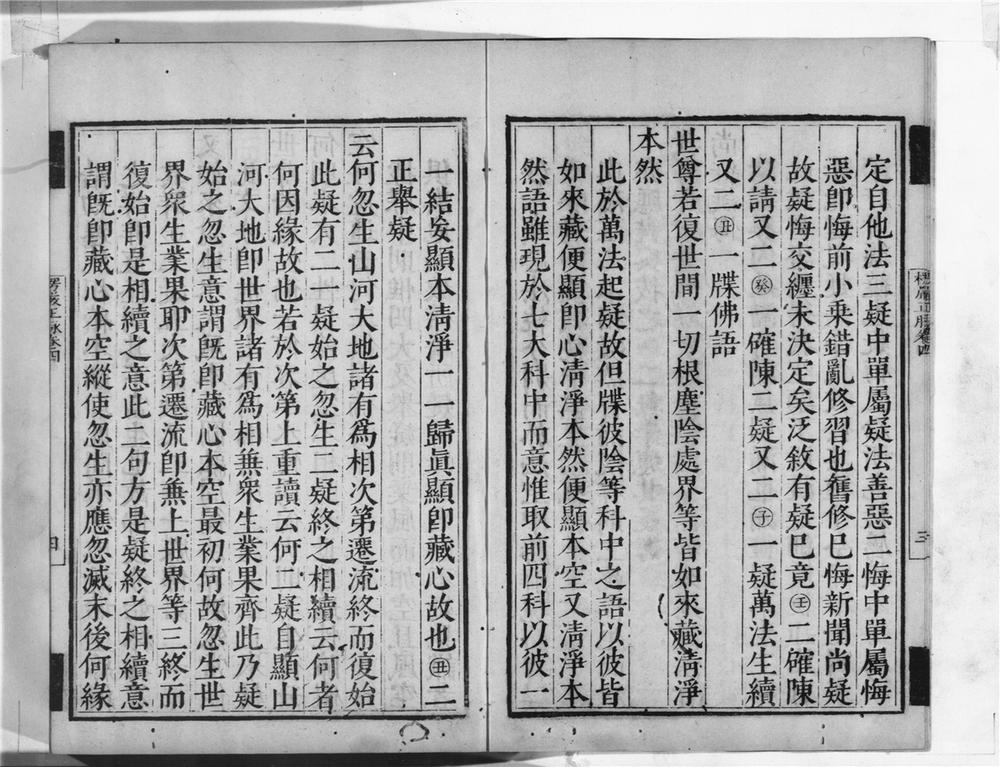 定自他法三疑中單屬疑法善惡二悔中單屬悔
惡卽悔前小乗錯亂修習也舊修巳悔新聞尚疑
故疑悔交纒未決定矣泛敘有疑巳竟㊂二確陳
以請又二㊂一確陳二疑又二㊂一疑萬法生續
又二㊂一牒佛語
世尊若復世間一切根塵陰處界等皆如來藏淸淨
本然
此於萬法起疑故但牒彼陰等科中之語以彼皆
如來藏便顯卽心淸淨本然便顯本空又淸淨本
然語雖現於七大科中而意惟取前四科以彼一
三
楞嚴正脉卷四
一結妄顯本淸淨一一歸眞顯卽藏心故也㊂二
正舉疑
云何忽生山河大地諸有爲相次第遷流終而復始
此疑有二一疑始之忽生二疑終之相續云何者
何因緣故也若於次第上重讀云何二疑自顯山
河大地卽世界諸有爲相無衆生業果齊此乃疑
始之忽生意謂旣卽藏心本空最初何故忽生世
界衆生業果耶次第遷流卽無上世界等三終而
復始卽是相續之意此二句方是疑終之相續意
謂旣卽藏心本空縱使忽生亦應忽滅末後何緣
楞嚴正脉卷四
四